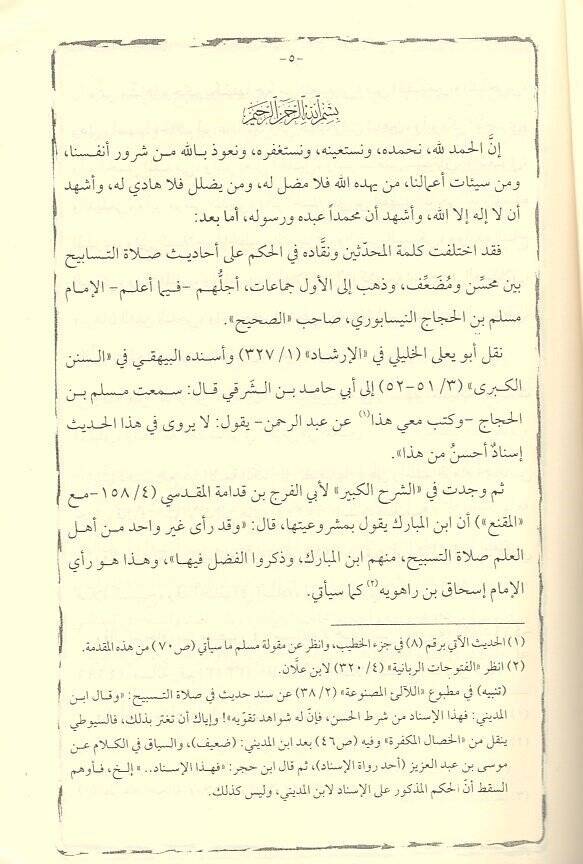 -٥-
بسم الله الرحمن الرحيم
إنَّ الحمد لله، نحمده، ونستعينه، ونستغفره، ونعوذ بالله من شرور أنفسنا،
ومن سيئات أعمالنا، من يهده الله فلا مضل له، ومن يضلل فلا هادي له، وأشهد
أن لا إله إلا الله، وأشهد أن محمداً عبده ورسوله، أما بعد:
فقد اختلفت كلمة المحدّثين ونقَّاده في الحكم على أحاديث صلاة التسابيح
بين محسِّن ومُضَعِّف، وذهب إلى الأول جماعات، أجلُّهم -فيما أعلم- الإمام
مسلم بن الحجاج النيسابوري، صاحب «الصحيح».
نقل أبو يعلى الخليلي في «الإرشاد» (١/ ٣٢٧) وأسنده البيهقي في «السنن
الكبرى» (٣/ ٥١-٥٢) إلى أبي حامد بن الشَرقي قال: سمعت مسلم بن
الحجاج -وكتب معي هذا(١) عن عبد الرحمن- يقول: لا يروى في هذا الحديث
إسنادٌ أحسنُ من هذا».
ثم وجدت في «الشرح الكبير» لأبي الفرج بن قدامة المقدسي (٤/ ١٥٨-مع
«المقنع») أن ابن المبارك يقول بمشروعيتها، قال: «وقد رأى غير واحد من أهل
العلم صلاة التسبيح، منهم ابن المبارك، وذكروا الفضل فيها»، وهذا هو رأي
الإمام إسحاق بن راهويه(٢) كما سيأتي.
(١) الحديث الآتي برقم (٨) في جزء الخطيب، وانظر عن مقولة مسلم ما سيأتي (ص ٧٠) من هذه المقدمة.
(٢) انظر «الفتوحات الربانية» (٤/ ٣٢٠) لابن علَّان.
(تنبيه) في مطبوع «اللآلئ المصنوعة» (٢/ ٣٨) عن سند حديث في صلاة التسبيح: «وقال ابن
المديني: فهذا الإسناد من شرط الحسن، فإنّ له شواهد تقوّيه»! وإياك أن تغتر بذلك، فالسيوطي
ينقل من «الخصال المكفرة» وفيه (ص٤٦) بعد ابن المديني: (ضعيف)، والسياق في الكلام عن
موسى بن عبد العزيز (أحد رواة الإسناد)، ثم قال ابن حجر: «فهذا الإسناد..» إلخ، فأوهم
السقط أنّ الحكم المذكور على الإسناد لابن المديني، وليس كذلك.